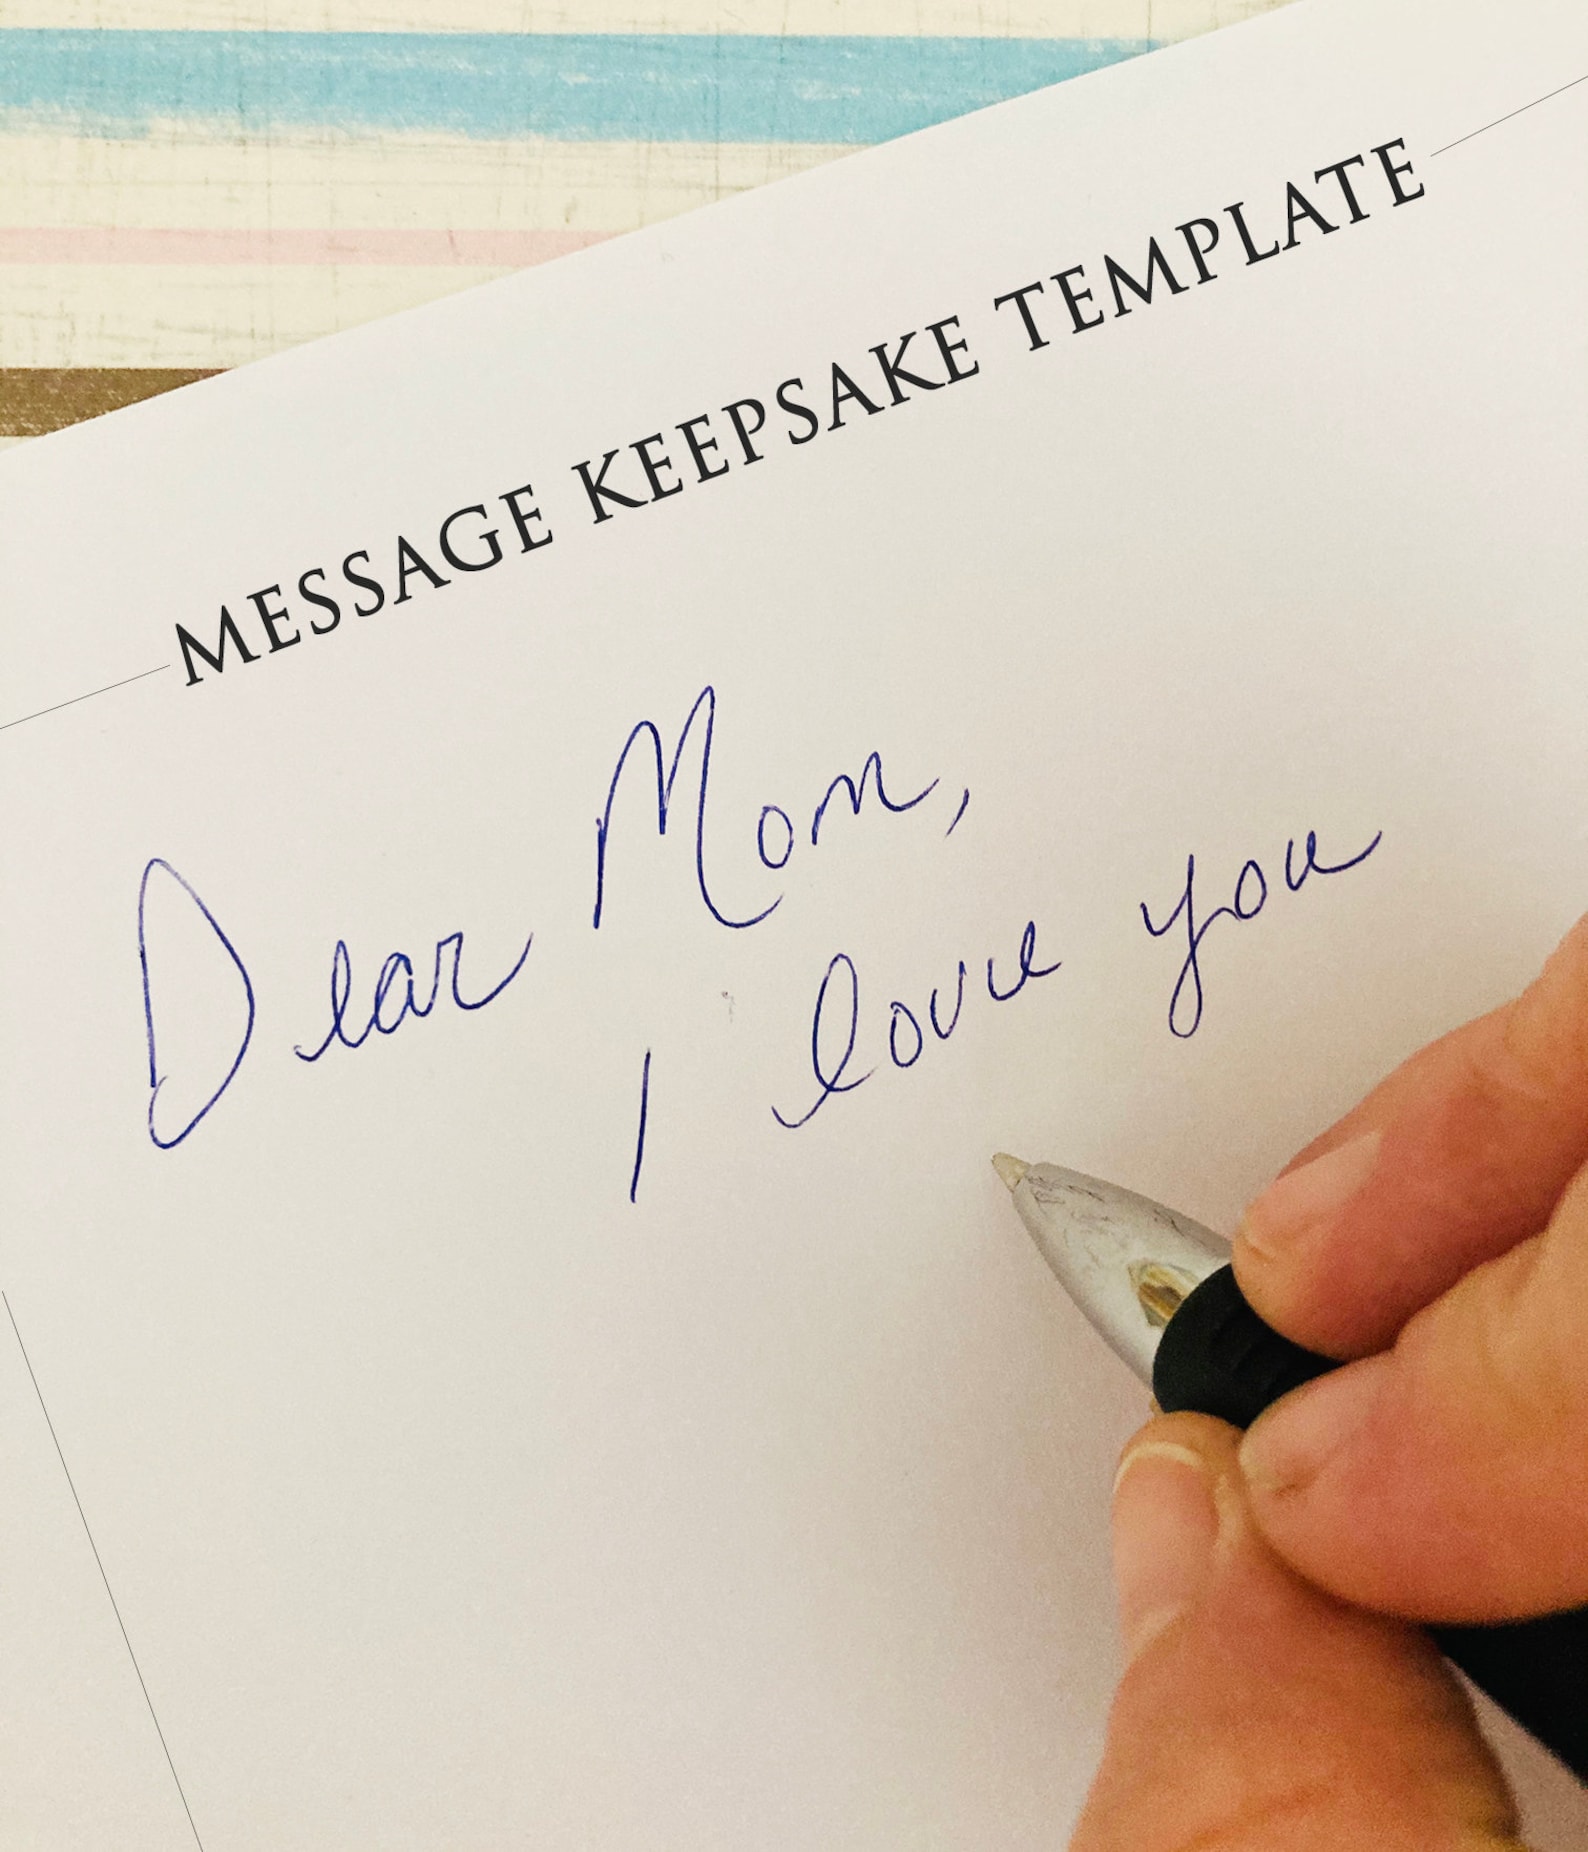 MESSAGE KEEPSAKE TEMPLATE
Dear Mom,
I love you